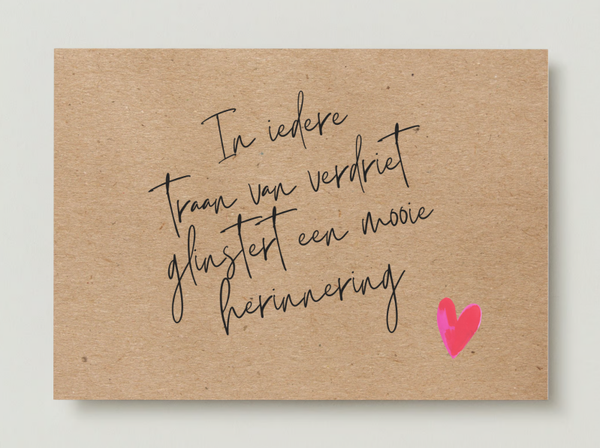 In iedere
traan van verdriet
glinstert een mooie
herinnering